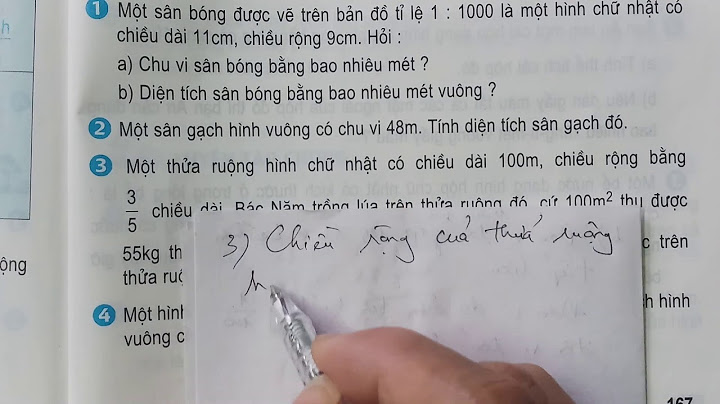 h
ộng
1 Một sân bóng được vẽ trên bản đồ tỉ lệ 1 : 1000 là một hình chữ nhật có
chiều dài 11cm, chiều rộng 9cm. Hỏi :
a) Chu vi sân bóng bằng bao nhiêu mét ?
b) Diện tích sân bóng bằng bao nhiêu mét vuông ?
2 Một sân gạch hình vuông có chu vi 48m. Tính diện tích sân gạch đó.
3 Một thửa ruộng hình chữ nhật có chiều dài 100m, chiều rộng bằng
3/5 chiều dài. Bác Năm trồng lúa trên thửa ruộng đó, cứ 100m² thu được
55kg th c trên
thửa ruộ
4 Một hình h hình
vuông c
3) Chiều rộng của thửa ruộng
h
167